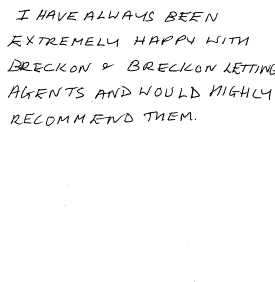 I HAVE ALWAYS BEEN
EXTREMELY HAPPY WITH
BRECKON & BRECKON LETTING
AGENTS AND WOULD HIGHLY
RECOMMEND THEM.